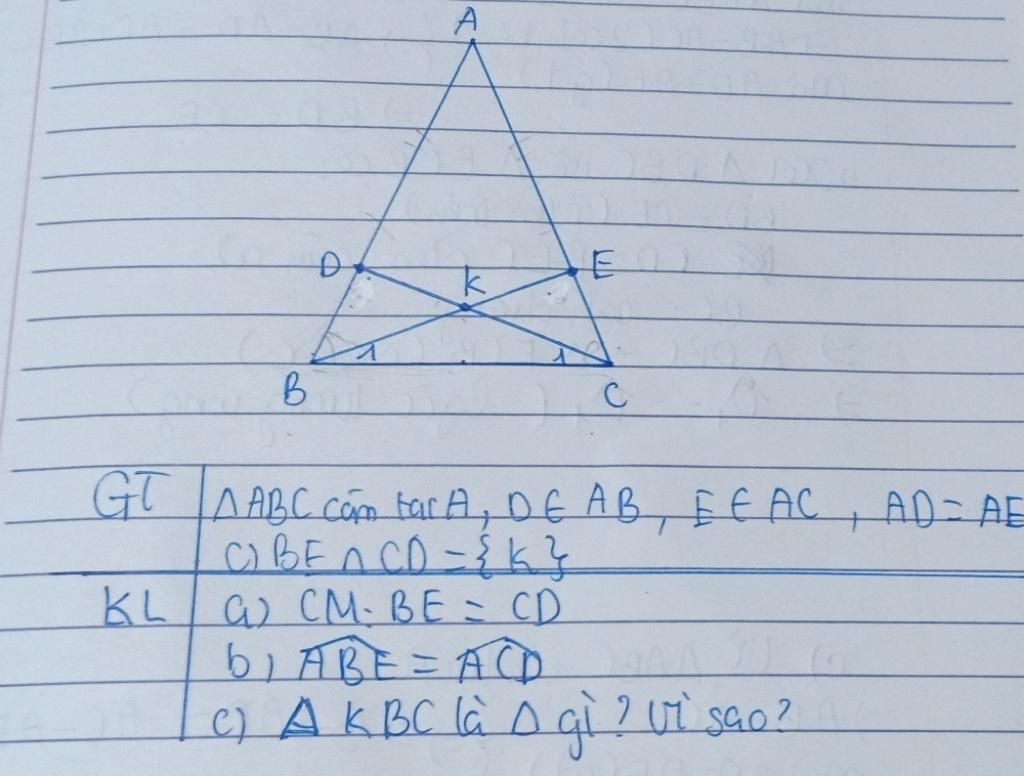 A
D
K
E
1
1
B
C
GT
ΔABC cân tại A, D ∈ AB, E ∈ AC, AD = AE
c) BE ∩ CD = {K}
KL
a) CM: BE = CD
b) \widehat{ABE} = \widehat{ACD}
c) Δ KBC là Δ gì? Vì sao?